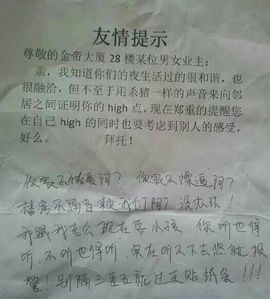 友情提示
尊敬的金帝大厦28楼某位男女业主:
亲,我知道你们的夜生活过的很和谐,也
很融洽,但不至于用杀猪一样的声音来向邻
居之间证明你的high点,现在郑重的提醒您
在自己high的同时也要考虑到别人的感受,
好么。 拜托!
你家不做爱阿?你家不操逼阿?
楼房不隔音赖我们阿?没办法!
我跟我老公现在要小孩 你听也得
听,不听也得听,实在听不下去您就报
警!别隔三差五就过来贴纸条!!!